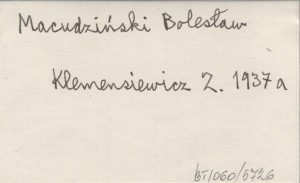 Macudziński Bolesław
Klemensiewicz Z. 1937a
BT/060/5726